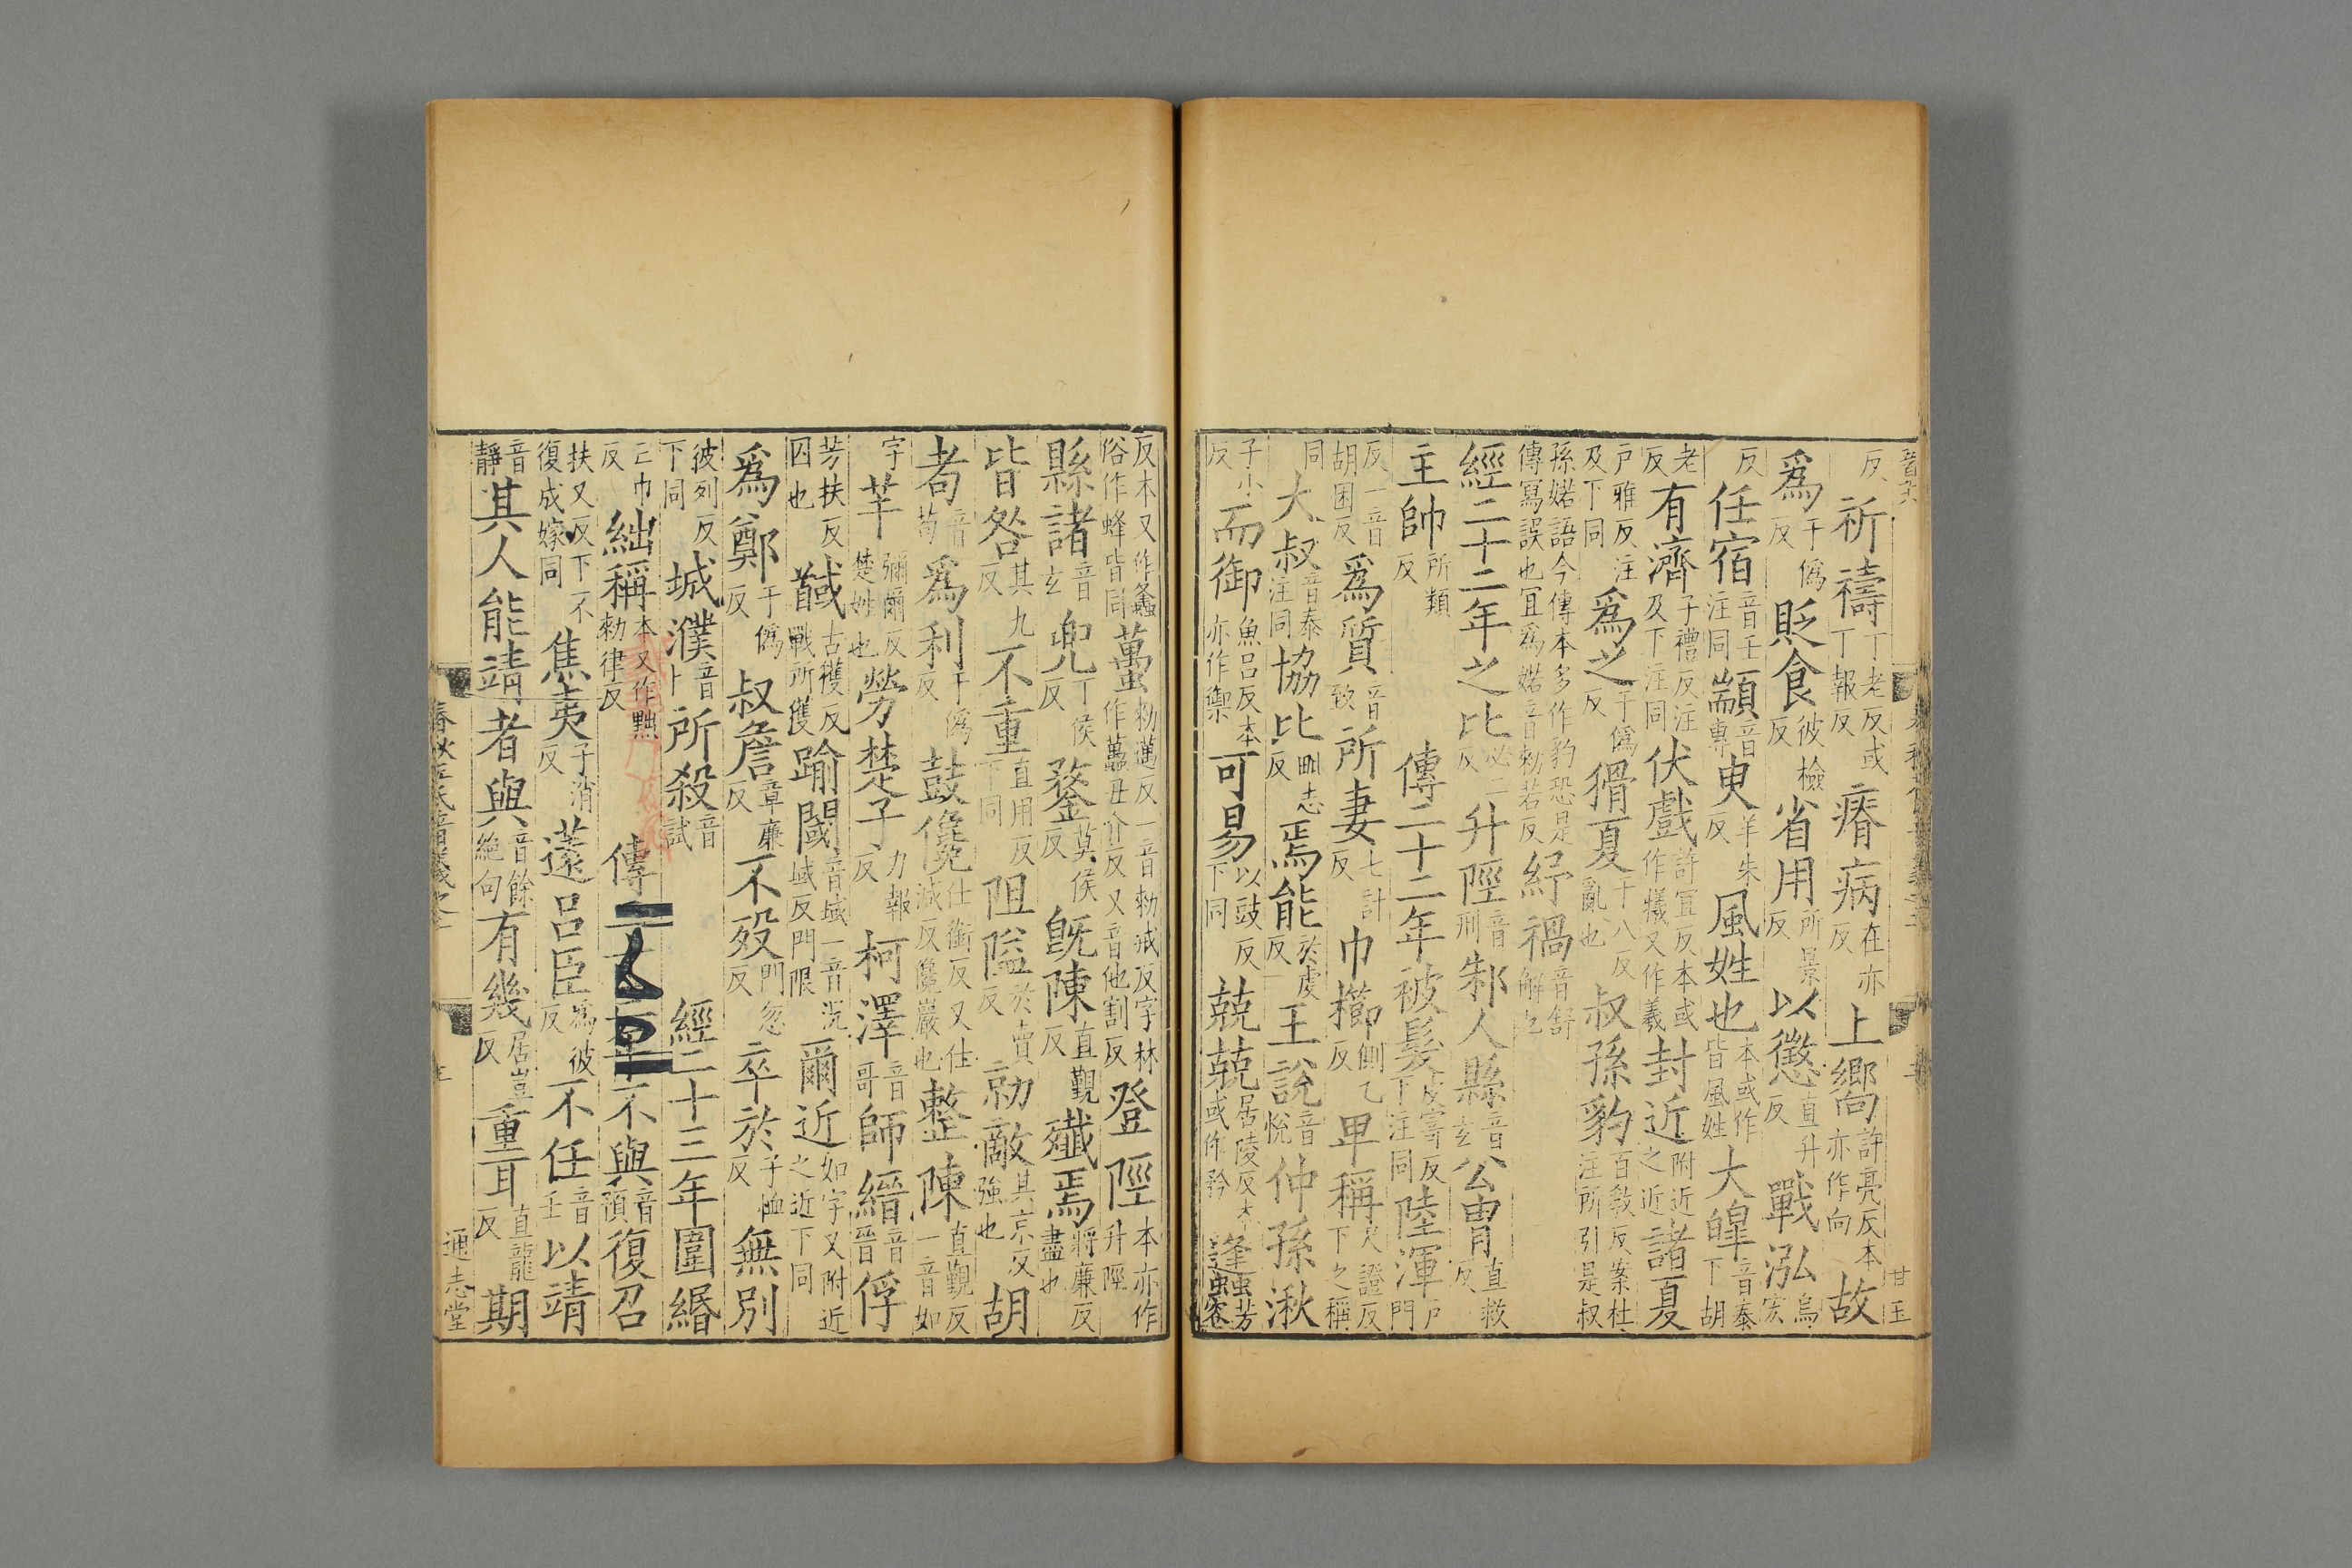 反祈禱丁老反或丁報反瘠病在亦反上嚮許亮反本亦作向故
爲于僞反貶食彼檢反省用所景反以懲直升反戰泓烏宏
反任宿音壬注同顓音專臾羊朱反風姓也本或作皆風姓大皥音泰下胡
老反有濟子禮反注及下注同伏戲許宜反本或作犧又作羲封近附近之近諸夏
戶雅反注及下同爲之于僞反猾夏于八反亂也叔孫豹百教反案杜注所引是叔
孫婼語今傳本多作豹恐是傳寫誤也宜爲婼音勑若反紓禍音舒解也
經二十二年之比必二反升陘音刑邾人縣音玄公冑直救反
主帥所類反傳二十二年被髮皮寄反下注同陸渾戶門
反一音胡困反爲質音致所妻七計反巾櫛側乙反卑稱尺證反下之稱
同大叔音泰注同協比毗志反焉能於虔反王說音悅仲孫湫
子小反而御魚呂反本亦作禦可易以豉反下同兢兢居陵反本或作矜逢蠭芳
反本又作螽俗作蜂皆同蠆勑邁反一音勑戒反字林作蠆丑介反又音他割反登陘本亦作升陘
縣諸音玄兜丁侯反鍪莫侯反旣陳直覲反殲焉將廉反盡也
皆咎其九反不重直用反下同阻隘於賣反勍敵其京反強也胡
耇音苟爲利于僞反鼓儳仕銜反又仕減反儳巖也整陳直覲反一音如
字羋彌爾反楚姓也勞楚子力報反柯澤音哥師縉音晉俘
芳扶反囚也馘古獲反戰所獲踰閾音域一音況域反門限爾近如字又附近之近下同
爲鄭于僞反叔詹章廉反不歿門忽反卒於子恤反無別
彼列反下同城濮音卜所殺音試經二十三年圍緡
亡巾反絀稱本又作黜勑律反傳不與音預復召
扶又反下不復成嫁同焦夷子消反薳呂臣爲彼反不任音壬以靖
音靜其人能靖者與音餘絕句有幾居豈反重耳直龍反期
通志堂